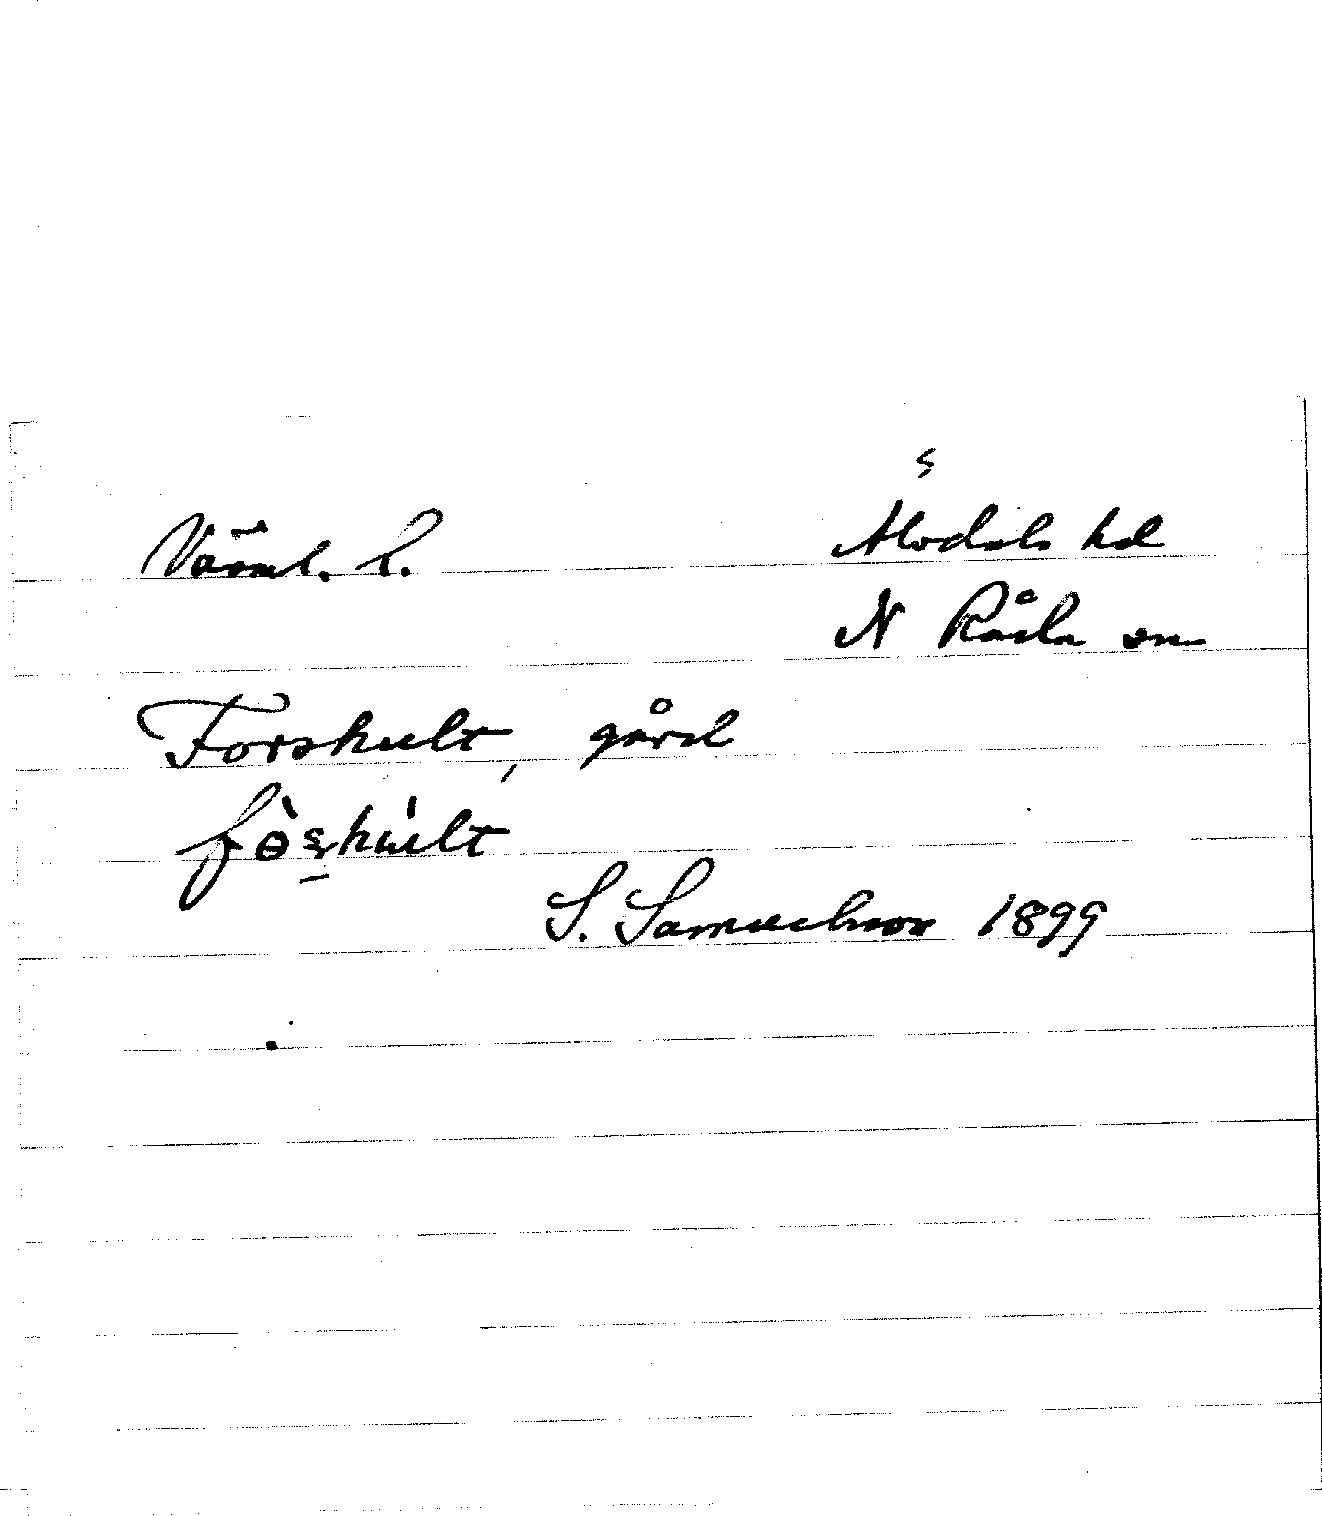 Värml. l.
Älvdals hd
N Råda sn
Forshult, gård
S. Samuelsson 1899